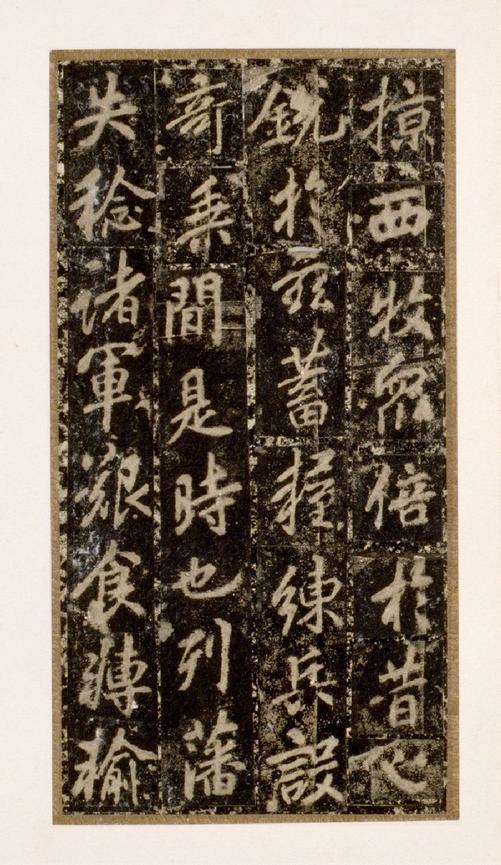 掠西牧衆倍於昔心
銳於茲蓄糧練兵設
奇乘間是時也列藩
失稔諸軍艱食轉輸